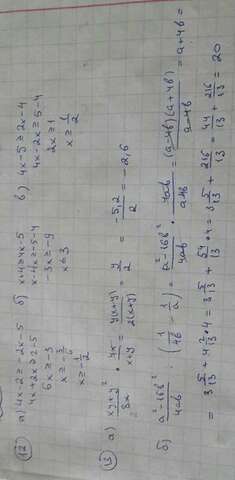 12 а) 4x-2≥-2x-5
4x+2x≥2-5
6x≥-3
x≥-3/6
x≥-1/2
б) x+4≥4x-5
x-4x≥-5-4
-3x≥-9
x≤3
в) 4x-5≥2x-4
4x-2x≥5-4
2x≥1
x≥1/2
13 а) · 4x/(x+y) = y(x+y)/2(x+y) = y/2 = -5,2/2 = -2,6
б) (a²-16b²)/4ab · (1/4b - 1/a) = (a²-16b²)/4ab · 4ab/(a-4b) = (a-4b)(a+4b)/(a-4b) = a+4b =
= 3 5/13 + 4 2/13 · 4 = 3 5/13 + 54/13 · 4 = 3 5/13 + 216/13 = 44/13 + 216/13 = 20